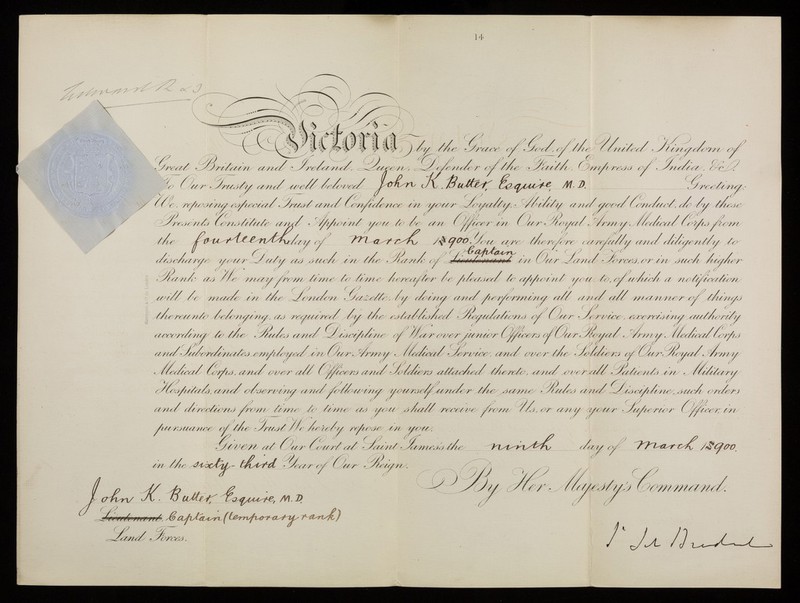 14
Victoria by the Grace of God, of the United Kingdom of
Great Britain and Ireland, Queen, Defender of the Faith, Empress of India, &c.
To Our Trusty and well beloved John K. Butter, Esquire, M.D. Greeting:
We, reposing especial Trust and Confidence in your Loyalty, Ability and good Conduct, do by these
Presents Constitute and Appoint you to be an Officer in Our Royal Army Medical Corps from
the fourteenth day of March 1900. You are therefore carefully and diligently to
discharge your Duty as such in the Rank of Lieutenant Captain in Our Land Forces, or in such higher
Rank as We may from time to time hereafter be pleased to appoint you to, of which a notification
will be made in the London Gazette, by doing and performing all and all manner of things
thereunto belonging, as required by the established Regulations of Our Service, exercising authority
according to the Rules and Discipline of War over junior Officers of Our Royal Army Medical Corps
and Subordinates employed in Our Army Medical Service, and over the Soldiers of Our Royal Army
Medical Corps, and over all Officers and Soldiers attached thereto, and over all Patients in Military
Hospitals, and observing and following yourself under the same Rules and Discipline, such orders
and directions from time to time as you shall receive from Us, or any your Superior Officer, in
pursuance of the Trust We hereby repose in you.
Given at Our Court at Saint James's the ninth day of March 1900.
in the sixty-third Year of Our Reign.
By Her Majesty's Command.
John K. Butter, Esquire, M.D.
Lieutenant Captain (temporary rank)
Land Forces.